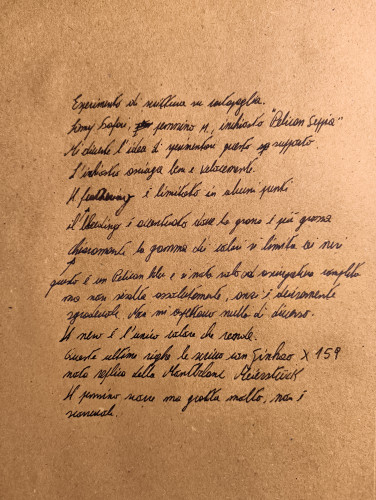 Esperimento di scrittura su cartapaglia.
Lamy Safari, pennino M, inchiostro "Pelican Seppia"
Mi diverte l'idea di sperimentare questo supporto
L'inchiostro asciuga bene e velocemente.
Il feathering è limitato in alcuni punti
il bleeding è accentuato dove la grana è più grossa
chiaramente la gamma dei colori si limita ai neri
questo è un Pelican blu e si nota solo ad asciugatura completa
ma non risalta assolutamente, anzi è decisamente
sgradevole. Ma non mi aspettavo nulla di diverso.
Il nero è l'unico colore che rende.
Queste ultime righe le scrivo con Jinhao X 159
nota replica della Montblanc Meisterstück
Il pennino scorre ma gratta molto, non è
scorrevole.